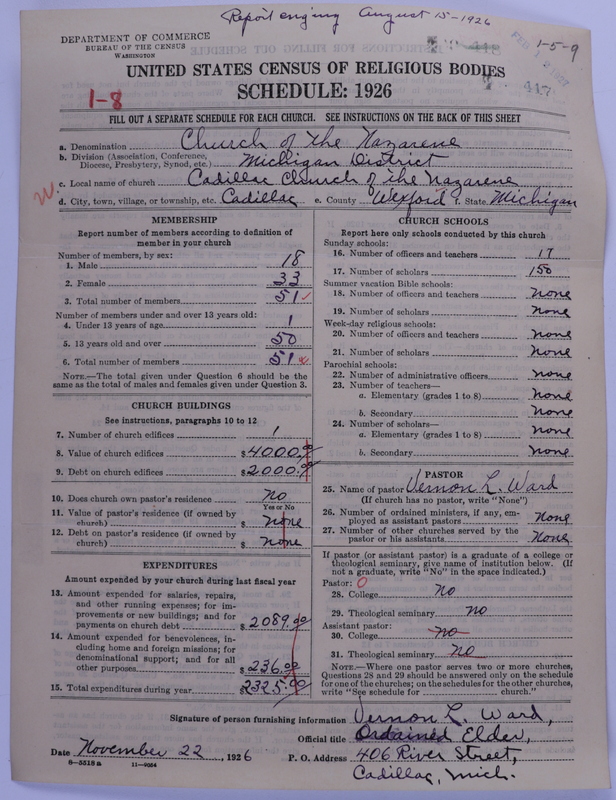 Report ending August 15-1926
DEPARTMENT OF COMMERCE
BUREAU OF THE CENSUS
WASHINGTON
418
FEB 12 1927
1-5-9
UNITED STATES CENSUS OF RELIGIOUS BODIES
SCHEDULE: 1926
417
1-8
FILL OUT A SEPARATE SCHEDULE FOR EACH CHURCH. SEE INSTRUCTIONS ON THE BACK OF THIS SHEET
a. Denomination Church of the Nazarene
b. Division (Association, Conference, Diocese, Presbytery, Synod, etc.) Michigan District
c. Local name of church Cadillac Church of the Nazarene
W.
d. City, town, village, or township, etc. Cadillac e. County Wexford f. State Michigan
MEMBERSHIP
Report number of members according to definition of
member in your church
Number of members, by sex:
1. Male 18
2. Female 33
3. Total number of members 51
Number of members under and over 13 years old:
4. Under 13 years of age 1
5. 13 years old and over 50
6. Total number of members 51
NOTE.—The total given under Question 6 should be
same as the total of males and females given under Question 3.
CHURCH BUILDINGS
See instructions, paragraphs 10 to 12
7. Number of church edifices 1
8. Value of church edifices $4000.00
9. Debt on church edifices $2000.00
10. Does church own pastor's residence No
Yes or No
11. Value of pastor's residence (if owned by
church) $ none
12. Debt on pastor's residence (if owned by
church) $ none
EXPENDITURES
Amount expended by your church during last fiscal year
13. Amount expended for salaries, repairs,
and other running expenses; for im-
provements or new buildings; and for
payments on church debt $2089.00
14. Amount expended for benevolences, in-
cluding home and foreign missions; for
denominational support; and for all
other purposes $236.00
15. Total expenditures during year $2325.00
CHURCH SCHOOLS
Report here only schools conducted by this church
Sunday schools:
16. Number of officers and teachers 17
17. Number of scholars 150
Summer vacation Bible schools:
18. Number of officers and teachers none
19. Number of scholars none
Week-day religious schools:
20. Number of officers and teachers none
21. Number of scholars none
Parochial schools:
22. Number of administrative officers none
23. Number of teachers—
a. Elementary (grades 1 to 8) none
b. Secondary none
24. Number of scholars—
a. Elementary (grades 1 to 8) none
b. Secondary none
PASTOR
25. Name of pastor Vernon L. Ward
(If church has no pastor, write "None")
26. Number of ordained ministers, if any, em-
ployed as assistant pastors none
27. Number of other churches served by the
pastor or his assistants none
If pastor (or assistant pastor) is a graduate of a college or
theological seminary, give name of institution below. (If
not a graduate, write "No" in the space indicated.)
Pastor: O
28. College No
29. Theological seminary No
Assistant pastor:
30. College No
31. Theological seminary No
NOTE.—Where one pastor serves two or more churches,
Questions 28 and 29 should be answered only on the schedule
for one of the churches; on the schedules for the other churches,
write "See schedule for church."
Signature of person furnishing information Vernon L. Ward,
Official title Ordained Elder,
Date November 22, 1926 P. O. Address 406 River Street,
8-5518a 11-9054
Cadillac, Mich.